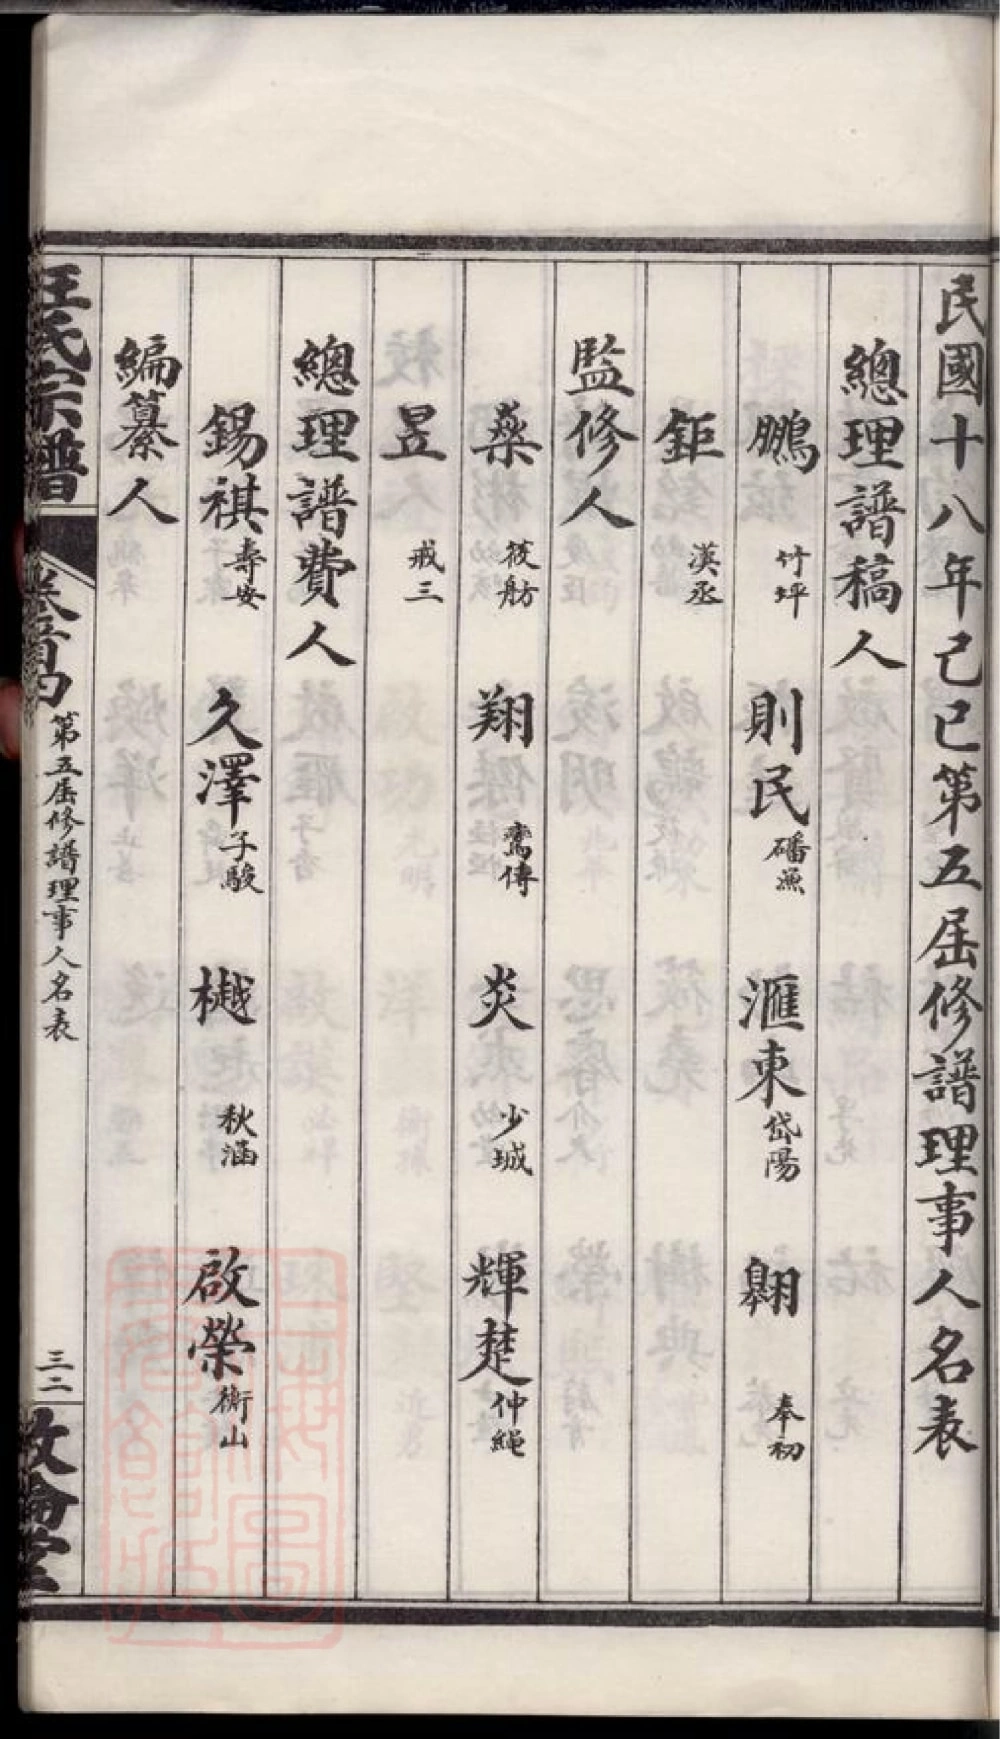 民國十八年己巳第五屆修譜理事人名表
總理譜稿人
鵬 竹坪 則民 磻漁 滙東 岱陽 翱 奉初
鉅 漢丞
監修人
燊 筱舫 翔 鸞傳 炎 少城 輝楚 仲繩
昱 戒三
總理譜費人
錫祺 壽安 久澤 子駿 樾 秋涵 啟榮 衡山
編纂人
汪氏宗譜
卷首
第五屆修譜理事人名表
三二
敦倫堂